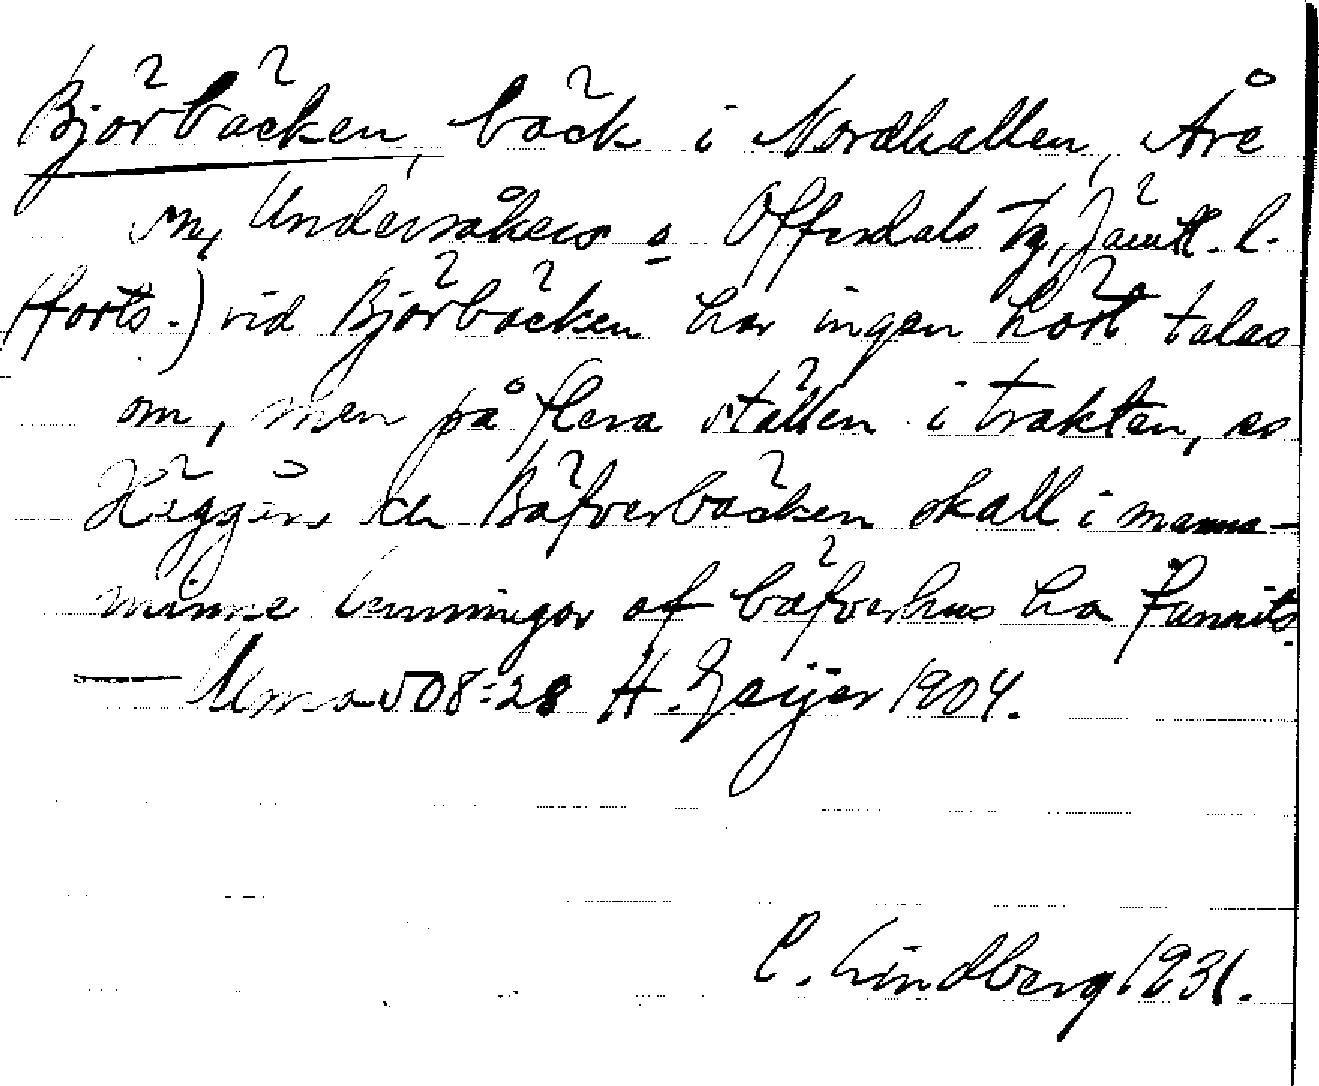 Björbäcken, bäck i Nordhallen, Åre
sn, Undersåkers o Offerdals tg, Jämtl. l.
(forts.) vid Björbäcken har ingen hört talas
om, men på flera ställen i trakten, as
Häggsjön Bäfverbäcken skall i manna-
minne lemningar af bäfverhus ha funnits.
— Uma 508:28 H. Geijer 1904.
C. Lindberg 1931.